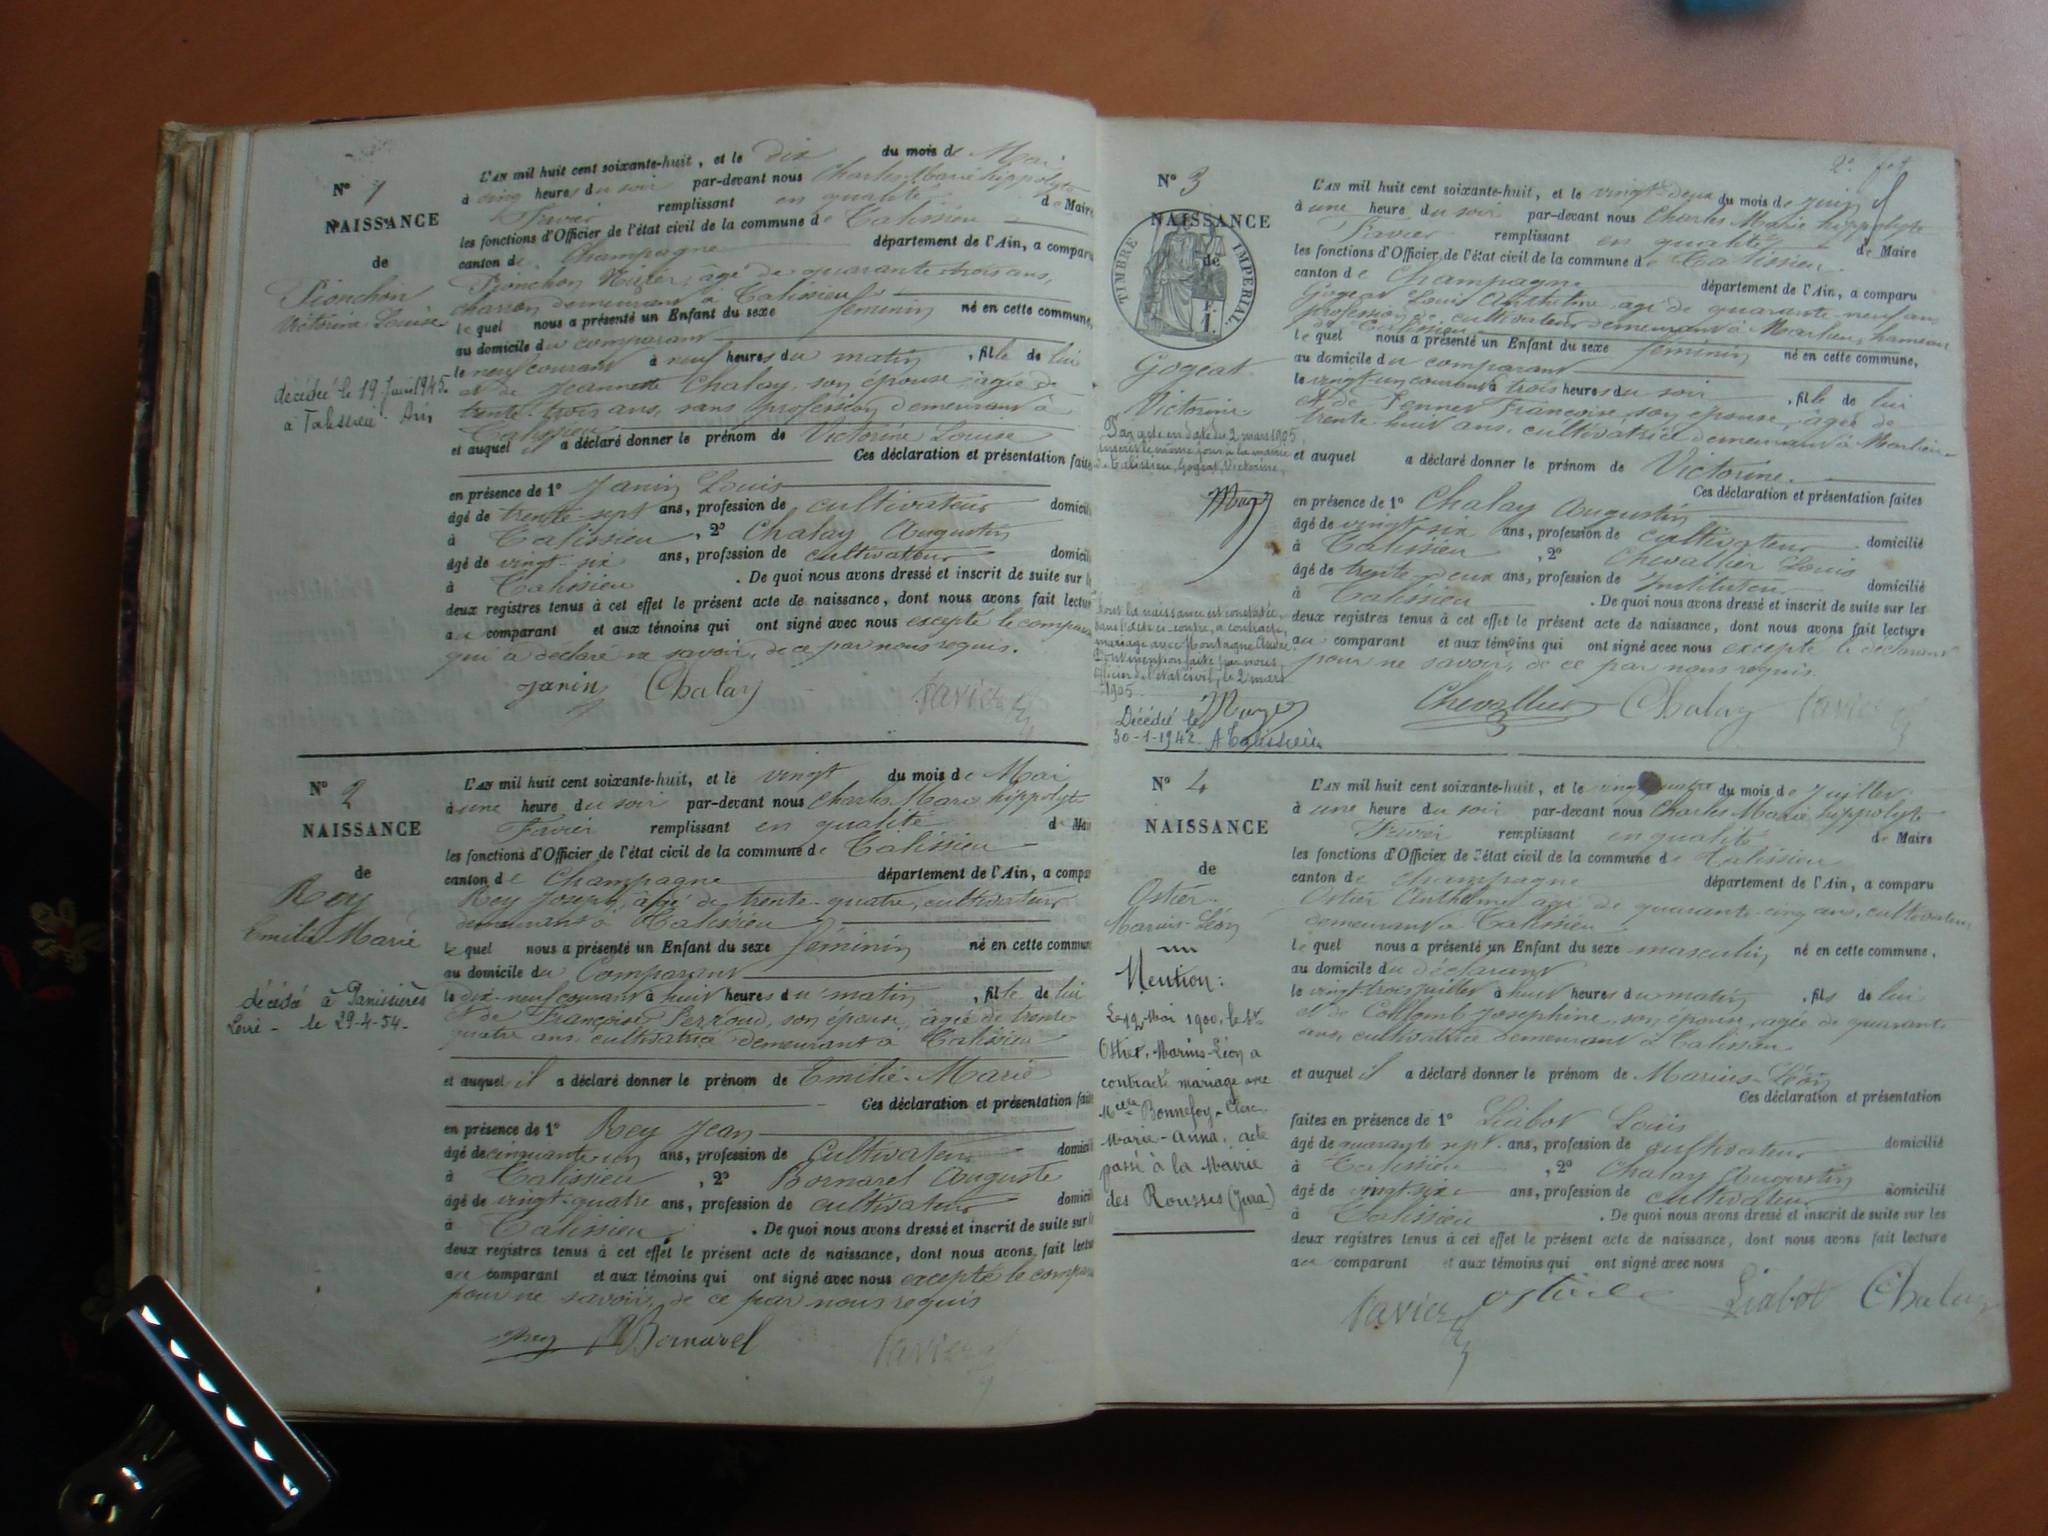 N° 1
NAISSANCE
de
Pionchon
Victorine Louise
décédée le 19 Juin 1945
à Talissieu Ain
L'AN mil huit cent soixante-huit, et le dix du mois de Mai
à cinq heures du soir par-devant nous Charles Marie hippolyte
Favier remplissant en qualité de Maire
les fonctions d'Officier de l'état civil de la commune de Talissieu
canton de Champagne département de l'Ain, a comparu
Pionchon âgé de quarante trois ans,
charron demeurant à Talissieu
lequel nous a présenté un Enfant du sexe féminin né en cette commune,
au domicile du comparant
le neuf courant à neuf heures du matin, fille de lui
et de Jeannette Chalay, son épouse, âgée de
trente-trois ans, sans profession, demeurant à
Talissieu
et auquel il a déclaré donner le prénom de Victorine Louise
Ces déclaration et présentation faites
en présence de 1° Janin Louis
âgé de trente-sept ans, profession de cultivateur domicilié
à Talissieu, 2° Chalay Augustin
âgé de vingt-six ans, profession de cultivateur domicilié
à Talissieu. De quoi nous avons dressé et inscrit de suite sur les
deux registres tenus à cet effet le présent acte de naissance, dont nous avons fait lecture
au comparant et aux témoins qui ont signé avec nous excepté le comparant
qui a déclaré ne savoir, de ce par nous requis.
Janin Chalay Favier
N° 2
NAISSANCE
de
Rey
Emilie Marie
décédée à Panissières
Loire - le 29-4-54-
L'AN mil huit cent soixante-huit, et le vingt du mois de Mai
à une heure du soir par-devant nous Charles Marie hippolyte
Favier remplissant en qualité de Maire
les fonctions d'Officier de l'état civil de la commune de Talissieu
canton de Champagne département de l'Ain, a comparu
Rey Joseph, âgé de trente-quatre, cultivateur
demeurant à Talissieu
lequel nous a présenté un Enfant du sexe féminin né en cette commune
au domicile du Comparant
le dix-neuf courant à huit heures du matin, fille de lui
et de Françoise Perroud, son épouse, âgée de trente
quatre ans, cultivatrice demeurant à Talissieu
et auquel il a déclaré donner le prénom de Emilie-Marie
Ces déclaration et présentation faites
en présence de 1° Rey Jean
âgé de cinquante-un ans, profession de Cultivateur domicilié
à Talissieu, 2° Bornarel Auguste
âgé de vingt-quatre ans, profession de cultivateur domicilié
à Talissieu. De quoi nous avons dressé et inscrit de suite sur les
deux registres tenus à cet effet le présent acte de naissance, dont nous avons fait lecture
au comparant et aux témoins qui ont signé avec nous excepté le comparant
pour ne savoir, de ce par nous requis
Rey Bornarel Favier
2e
N° 3
NAISSANCE
de
TIMBRE IMPERIAL
1 F.
Gogeat
Victorine
Par acte en date du 2 mars 1905
inscrit le même jour à la mairie
de Talissieu, Gogeat, Victorine,
dont la naissance est constatée
dans l'acte ci-contre, a contracté
mariage avec Montagne
Dont mention faite par nous,
officier de l'état civil, le 2 mars
1905
Décédée le
30-1-1942 A Talissieu
L'AN mil huit cent soixante-huit, et le vingt-deux du mois de juin
à une heure du soir par-devant nous Charles Marie hippolyte
Favier remplissant en qualité de Maire
les fonctions d'Officier de l'état civil de la commune de Talissieu.
canton de Champagne département de l'Ain, a comparu
Gogeat Louis Anthelme, âgé de quarante-neuf ans
profession de cultivateur demeurant à hameau
de Talissieu
lequel nous a présenté un Enfant du sexe féminin né en cette commune,
au domicile du comparant
le vingt-un courant à trois heures du soir, fille de lui
et de Françoise, son épouse, âgée de
trente huit ans, cultivatrice demeurant à
et auquel a déclaré donner le prénom de Victorine.
Ces déclaration et présentation faites
en présence de 1° Chalay Augustin
âgé de vingt-six ans, profession de cultivateur domicilié
à Talissieu, 2° Chevallier Louis
âgé de trente-deux ans, profession de Instituteur domicilié
à Talissieu. De quoi nous avons dressé et inscrit de suite sur les
deux registres tenus à cet effet le présent acte de naissance, dont nous avons fait lecture
au comparant et aux témoins qui ont signé avec nous excepté le déclarant
pour ne savoir, de ce par nous requis.
Chevallier Chalay Favier
N° 4
NAISSANCE
de
Ostier
Marius-Léon
Mention:
Le 12 Mai 1900, le Sr
Ostier, Marius-Léon a
contracté mariage avec
Melle Bonnefoy-
Marie-Anna, acte
passé à la Mairie
des Rousses (Jura)
L'AN mil huit cent soixante-huit, et le vingt-quatre du mois de Juillet
à une heure du soir par-devant nous Charles Marie hippolyte
Favier remplissant en qualité de Maire
les fonctions d'Officier de l'état civil de la commune de Talissieu
canton de Champagne département de l'Ain, a comparu
Ostier Anthelme âgé de quarante-cinq ans, cultivateur
demeurant à Talissieu
lequel nous a présenté un Enfant du sexe masculin né en cette commune,
au domicile du déclarant
le vingt-trois juillet à huit heures du matin, fils de lui
et de Collomb Josephine, son épouse, âgée de quarante
ans, cultivatrice demeurant à Talissieu
et auquel il a déclaré donner le prénom de Marius-Léon
Ces déclaration et présentation
faites en présence de 1° Liabot Louis
âgé de quarante sept ans, profession de cultivateur domicilié
à Talissieu, 2° Chalay Augustin
âgé de vingt-six ans, profession de cultivateur domicilié
à Talissieu. De quoi nous avons dressé et inscrit de suite sur les
deux registres tenus à cet effet le présent acte de naissance, dont nous avons fait lecture
au comparant et aux témoins qui ont signé avec nous
Favier Ostier Liabot Chalay